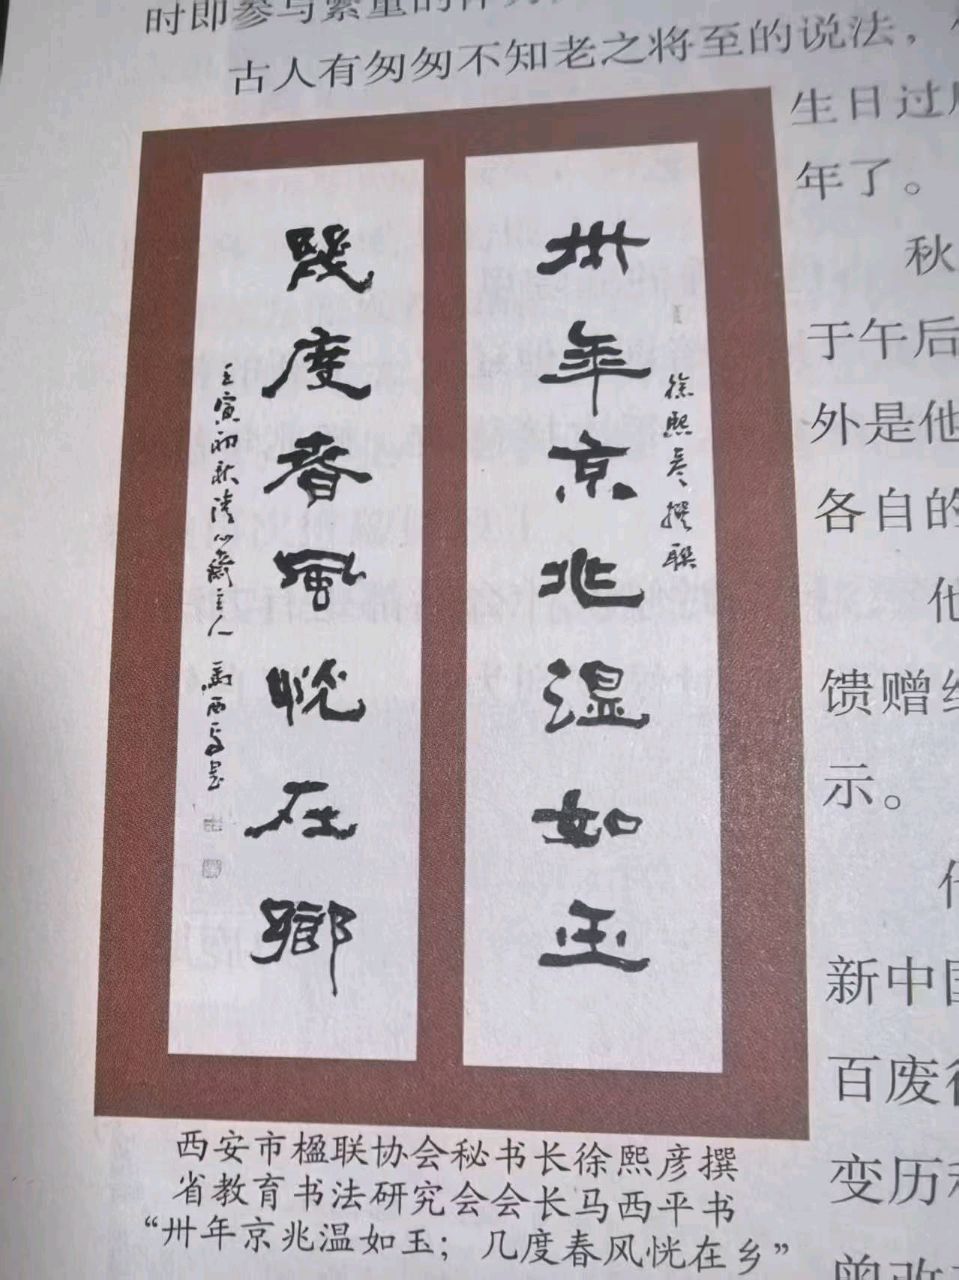 时即参与繁重的
古人有匆匆不知老之将至的说法，
生日过
年了。
秋
于午后
外是他
各自的
他
馈赠
示。
新中国
百废
变历
曾改
卅年京兆温如玉
徐熙彦撰联
几度春风恍在乡
壬寅初秋清心斋主人马西平书
西安市楹联协会秘书长徐熙彦撰
省教育书法研究会会长马西平书
“卅年京兆温如玉；几度春风恍在乡”